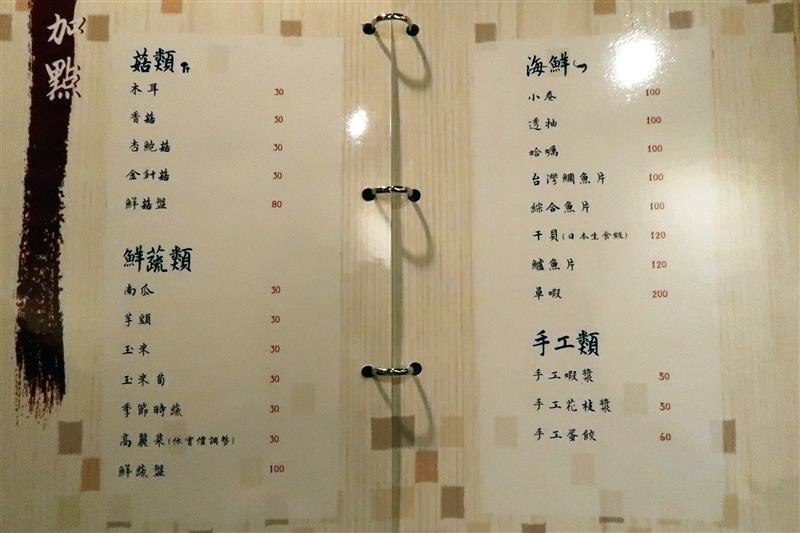 加點
菇類
木耳 30
香菇 30
杏鮑菇 30
金針菇 30
鮮菇盤 80
鮮蔬類
南瓜 30
芋頭 30
玉米 30
玉米筍 30
季節時蔬 30
高麗菜(依實價調整) 30
鮮蔬盤 100
海鮮
小卷 100
透抽 100
蛤蠣 100
台灣鯛魚片 100
綜合魚片 100
干貝(日本生食級) 120
鱸魚片 120
草蝦 200
手工類
手工蝦漿 50
手工花枝漿 50
手工蛋餃 60